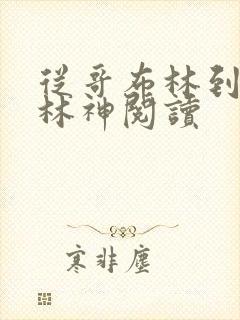 從哥布林到
林神閱讀
寒非塵